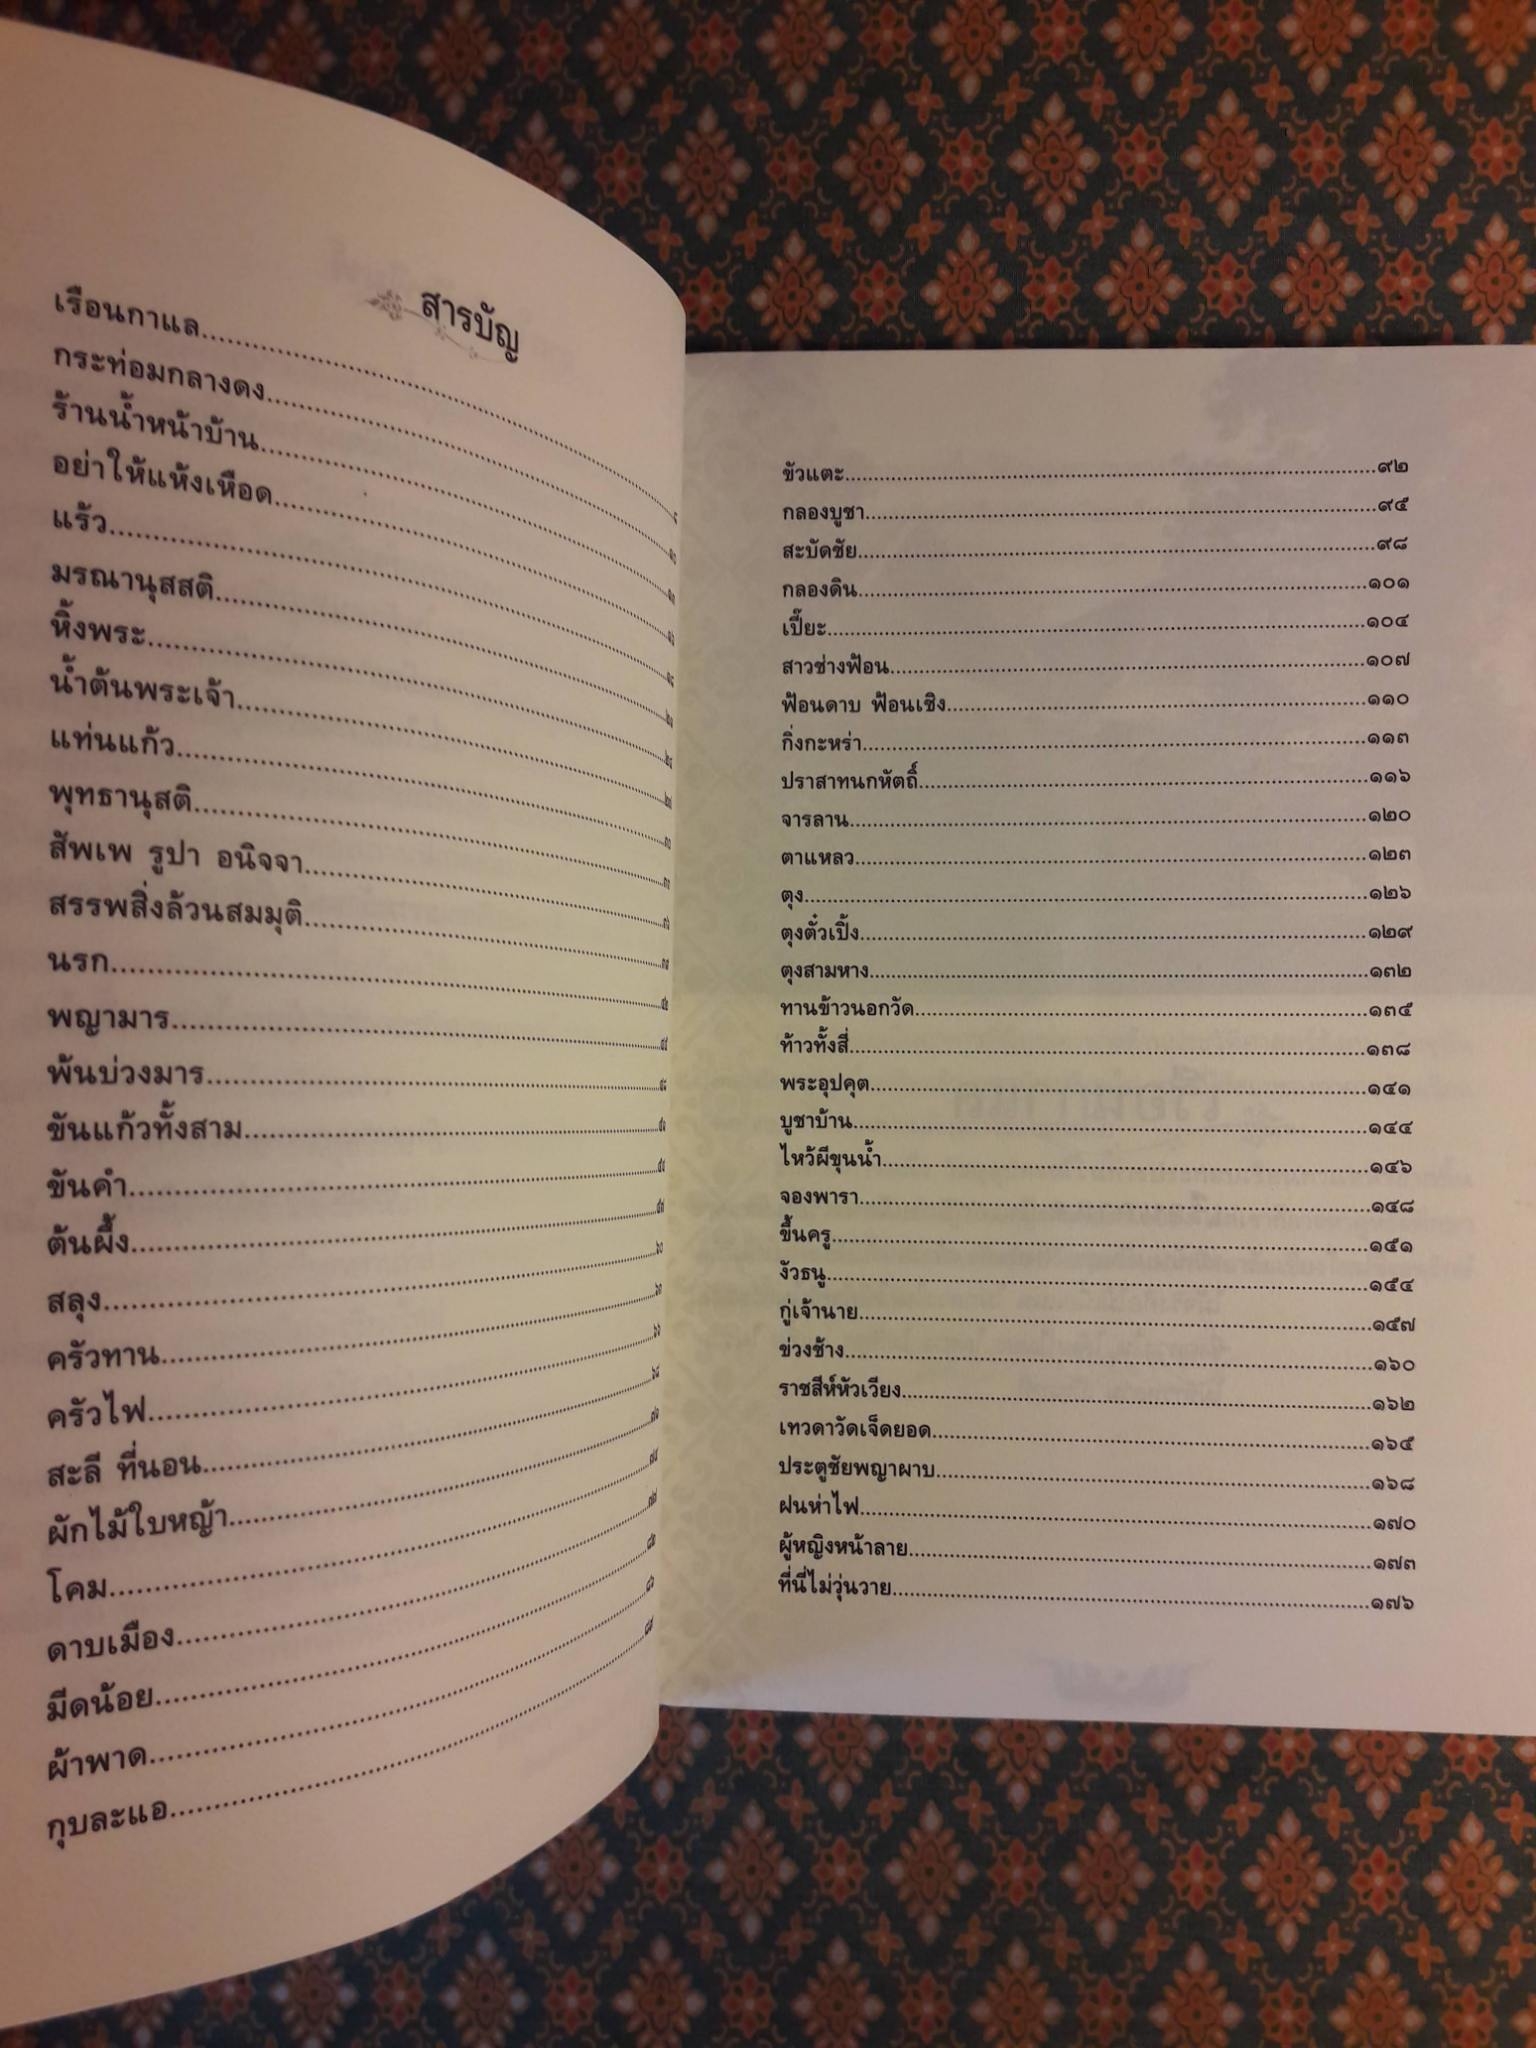 สารบัญ
เรือนกาแล
กระท่อมกลางดง
ร้านน้ำหน้าบ้าน
อย่าให้แห้งเหือด
แร้ว
มรณานุสสติ
หิ้งพระ
น้ำต้นพระเจ้า
แท่นแก้ว
พุทธานุสติ
สัพเพ รูปา อนิจจา
สรรพสิ่งล้วนสมมุติ
นรก
พญามาร
พ้นบ่วงมาร
ขันแก้วทั้งสาม
ขันคำ
ต้นผึ้ง
สลุง
ครัวทาน
ครัวไฟ
สะลี ที่นอน
ผักไม้ใบหญ้า
โคม
ดาบเมือง
มีดน้อย
ผ้าพาด
กุบละแอ
ขัวแตะ...๙๒
กลองบูชา...๙๕
สะบัดชัย...๙๘
กลองดิน...๑๐๑
เปี๊ยะ...๑๐๔
สาวช่างฟ้อน...๑๐๗
ฟ้อนดาบ ฟ้อนเชิง...๑๑๐
กิ่งกะหร่า...๑๑๓
ปราสาทนกหัตถิ์...๑๑๖
จารลาน...๑๒๐
ตาแหลว...๑๒๓
ตุง...๑๒๖
ตุงตั๋วเปิ้ง...๑๒๙
ตุงสามหาง...๑๓๒
ทานข้าวนอกวัด...๑๓๕
ท้าวทั้งสี่...๑๓๘
พระอุปคุต...๑๔๑
บูชาบ้าน...๑๔๔
ไหว้ผีขุนน้ำ...๑๔๖
จองพารา...๑๔๘
ขึ้นครู...๑๕๑
งัวธนู...๑๕๔
กู่เจ้านาย...๑๕๗
ข่วงช้าง...๑๖๐
ราชสีห์หัวเวียง...๑๖๒
เทวดาวัดเจ็ดยอด...๑๖๕
ประตูชัยพญาผาบ...๑๖๘
ฝนห่าไฟ...๑๗๐
ผู้หญิงหน้าลาย...๑๗๓
ที่นี่ไม่วุ่นวาย...๑๗๖